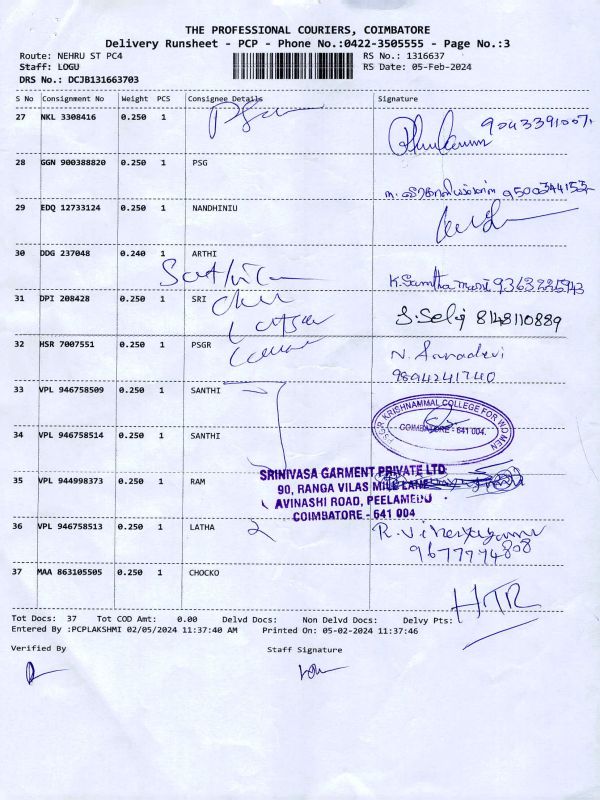 THE PROFESSIONAL COURIERS, COIMBATORE
Delivery Runsheet - PCP - Phone No.:0422-3505555 - Page No.:3
Route: NEHRU ST PC4 RS No.: 1316637
Staff: LOGU RS Date: 05-Feb-2024
DRS No.: DCJB131663703
S No Consignment No Weight PCS Consignee Details Signature
27 NKL 3308416 0.250 1
28 GGN 900388820 0.250 1 PSG
9500344153
29 EDQ 12733124 0.250 1 NANDHINIU
30 DDG 237048 0.240 1 ARTHI
9363225943
31 DPI 208428 0.250 1 SRI
S. Selvi 8148110889
32 HSR 7007551 0.250 1 PSGR
N. Annadevi
9894241740
33 VPL 946758509 0.250 1 SANTHI
PSGR KRISHNAMMAL COLLEGE FOR WOMEN
COIMBATORE - 641 004.
34 VPL 946758514 0.250 1 SANTHI
SRINIVASA GARMENT PRIVATE LTD
35 VPL 944998373 0.250 1 RAM
90, RANGA VILAS MILL LANE
AVINASHI ROAD, PEELAMEDU
COIMBATORE - 641 004
36 VPL 946758513 0.250 1 LATHA
9677774808
37 MAA 863105505 0.250 1 CHOCKO
HTR
Tot Docs: 37 Tot COD Amt: 0.00 Delvd Docs: Non Delvd Docs: Delvy Pts:
Entered By :PCPLAKSHMI 02/05/2024 11:37:40 AM Printed On: 05-02-2024 11:37:46
Verified By Staff Signature